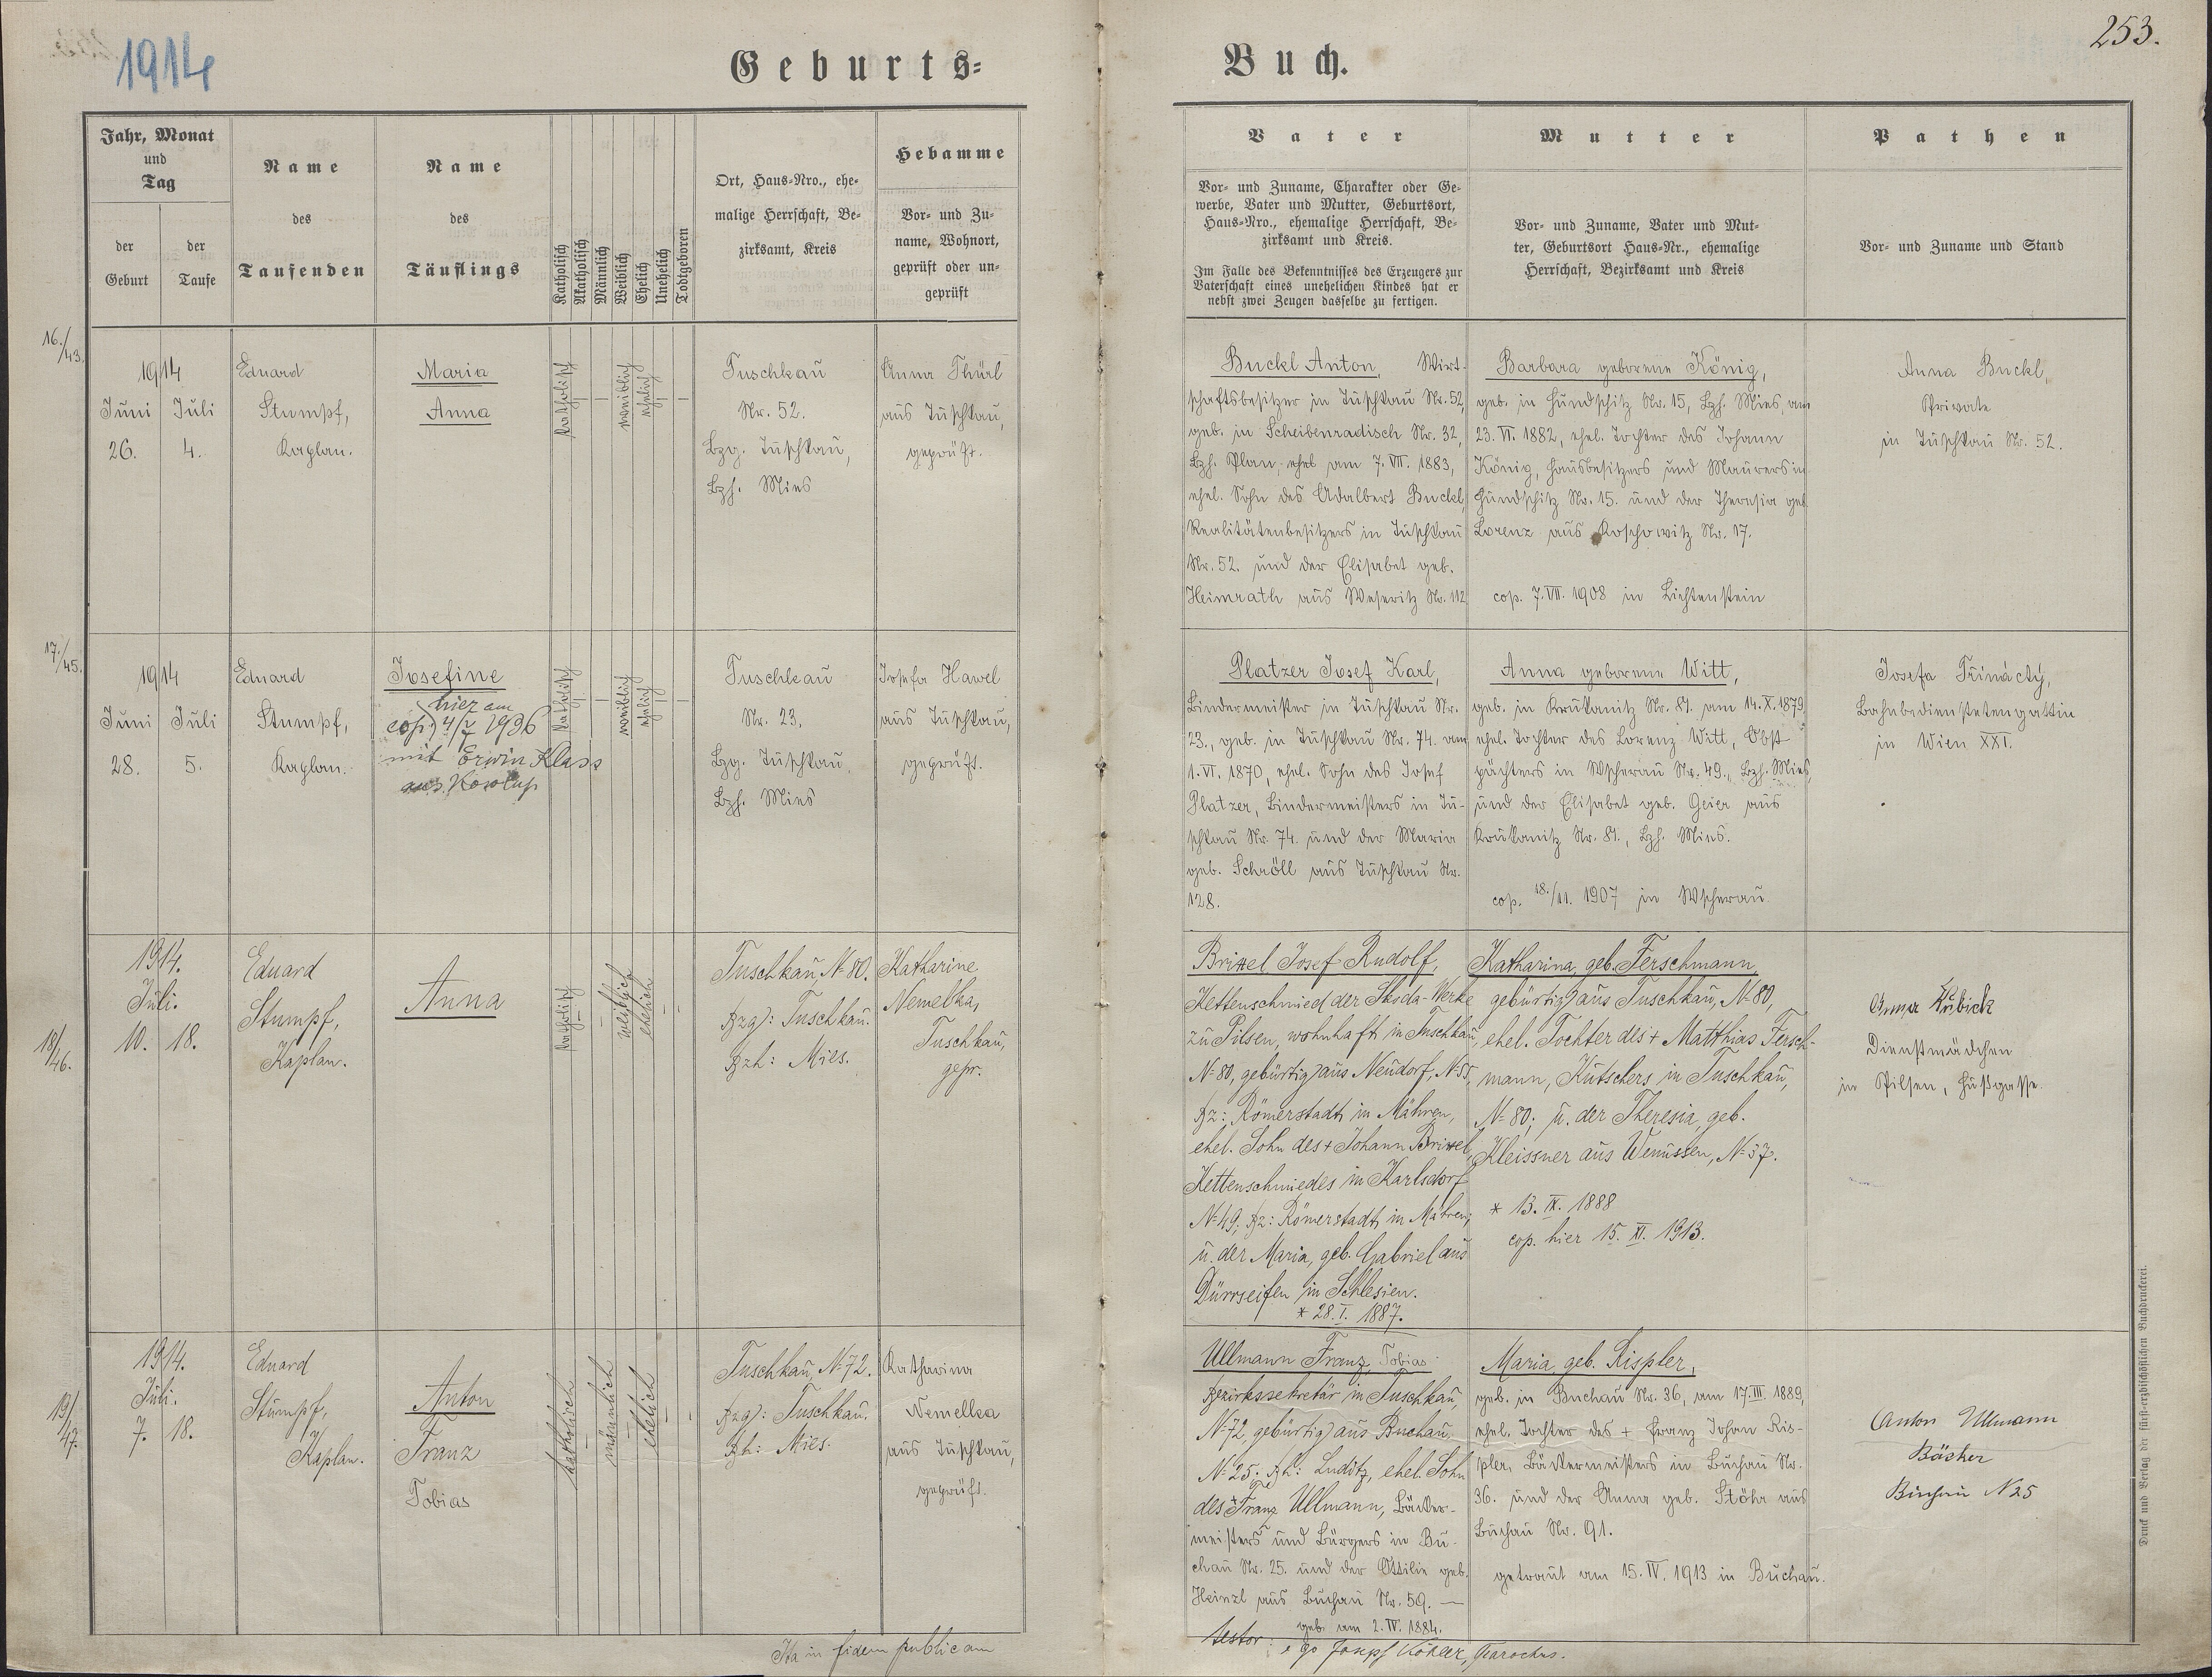 1914
Geburts-
Buch.
253.
Jahr, Monat
und
Tag
der
Geburt
der
Taufe
Name
des
Taufenden
Name
des
Täuflings
Katholisch
Akatholisch
Männlich
Weiblich
Ehelich
Unehelich
Todtgeboren
Ort, Haus-Nro., ehe-
malige Herrschaft, Be-
zirksamt, Kreis
Hebamme
Vor- und Zu-
name, Wohnort,
geprüft oder un-
geprüft
Vater
Vor- und Zuname, Charakter oder Ge-
werbe, Vater und Mutter, Geburtsort,
Haus-Nro., ehemalige Herrschaft, Be-
zirksamt und Kreis.
Im Falle des Bekenntnisses des Erzeugers zur
Vaterschaft eines unehelichen Kindes hat er
nebst zwei Zeugen dasselbe zu fertigen.
Mutter
Vor- und Zuname, Vater und Mut-
ter, Geburtsort Haus-Nr., ehemalige
Herrschaft, Bezirksamt und Kreis
Pathen
Vor- und Zuname und Stand
16./43.
1914
Juni Juli
26. 4.
Eduard
Stumpf,
Kaplan.
Maria
Anna
katholisch
weiblich
ehelich
Tuschkau
Nr. 52.
Bzg. Tuschkau,
Bzh. Mies
Anna Thürl
aus Tuschkau,
geprüft.
Buckl Anton, Wirt-
schaftsbesitzer in Tuschkau Nr. 52,
geb. in Scheibenradisch Nr. 32,
Bzh. Plan, ehel am 7. VII. 1883,
ehel. Sohn des Adalbert Buckl,
Realitätenbesitzers in Tuschkau
Nr. 52. und der Elisabet geb.
Heimrath aus Weseritz Nr. 112
Barbara geborene König,
geb. in Hundschitz Nr. 15, Bzh. Mies, am
23. VI. 1882, ehel. Tochter des Johann
König, Hausbesitzers und Maurers in
Hundschitz Nr. 15. und der Theresia geb.
Lorenz aus Roschowitz Nr. 17.
cop. 7. VII. 1908 in Lichtenstein
Anna Buckl,
Private
in Tuschkau Nr. 52.
17./45.
1914
Juni Juli
28. 5.
Eduard
Stumpf,
Kaplan.
Josefine
hier am
cop. 4/7 1936
mit Erwin Klass
aus Kosolup
katholisch
weiblich
ehelich
Tuschkau
Nr. 23.
Bzg. Tuschkau,
Bzh. Mies
Josefa Hawel
aus Tuschkau,
geprüft.
Platzer Josef Karl,
Bindermeister in Tuschkau Nr.
23., geb. in Tuschkau Nr. 74. am
1. VI. 1870, ehel. Sohn des Josef
Platzer, Bindermeisters in Tu-
schkau Nr. 74. und der Maria
geb. Schröll aus Tuschkau Nr.
128.
Anna geborene Witt,
geb. in Krukanitz Nr. 81. am 14. X. 1879,
ehel. Tochter des Lorenz Witt, Obst-
pächters in Wscherau Nr. 49., Bzh. Mies
und der Elisabet geb. Geier aus
Krukanitz Nr. 81., Bzh. Mies.
cop. 18./11. 1907 in Wscherau
Josefa Třinácty,
Bahnbedienstetengattin
in Wien XXI.
18/46.
1914.
Juli.
10. 18.
Eduard
Stumpf,
Kaplan.
Anna
katholisch
weiblich
ehelich
Tuschkau, N. 80.
Bzg: Tuschkau.
Bzh: Mies.
Katharine
Nemelka,
Tuschkau,
gepr.
Brixel Josef Rudolf,
Kettenschmied der Skoda-Werke
zu Pilsen, wohnhaft in Tuschkau,
N. 80, gebürtig aus Neudorf, N. 55,
Bz: Römerstadt in Mähren,
ehel. Sohn des + Johann Brixel,
Kettenschmiedes in Karlsdorf
N. 49; Bz: Römerstadt in Mähren;
u. der Maria, geb. Gabriel aus
Dürrseifen in Schlesien.
* 28. I. 1887.
Katharina, geb. Ferschmann,
gebürtig aus Tuschkau, N. 80,
ehel. Tochter des + Matthias Fersch-
mann, Kutschers in Tuschkau,
N. 80; u. der Theresia, geb.
Kleissner aus Wenussen, N. 37.
* 13. IX. 1888
cop. hier 15. XI. 1913.
Anna Kubick
Dienstmädchen
in Pilsen, Hußgasse.
19/47.
1914.
Juli.
7. 18.
Eduard
Stumpf,
Kaplan.
Anton
Franz
Tobias
katholisch
männlich
ehelich
Tuschkau, N. 72.
Bzg: Tuschkau.
Bh: Mies.
Katharina
Nemelka
aus Tuschkau,
geprüft.
Ullmann Franz Tobias
Bezirkssekretär in Tuschkau,
N. 72, gebürtig aus Buchau,
N. 25; Bh: Luditz, ehel. Sohn
des + Franz Ullmann, Bäcker-
meisters und Bürgers in Bu-
chau Nr. 25. und der Ottilie geb.
Heinzl aus Buchau Nr. 59. —
geb. am 2. IV. 1884.
Maria, geb. Rispler,
geb. in Buchau Nr. 36, am 17. III. 1889,
ehel. Tochter des + Franz Johan Ris-
pler, Bäckermeisters in Buchau Nr.
36. und der Anna geb. Stöhr aus
Buchau Nr. 91.
getraut am 15. IV. 1913 in Buchau.
Anton Ullmann
Bäcker
Buchau N 25
Ita in fidem publicam
testor: ego Josef Köhler, Parochus.
Druck und Verlag der fürst-erzbischöflichen Buchdruckerei.